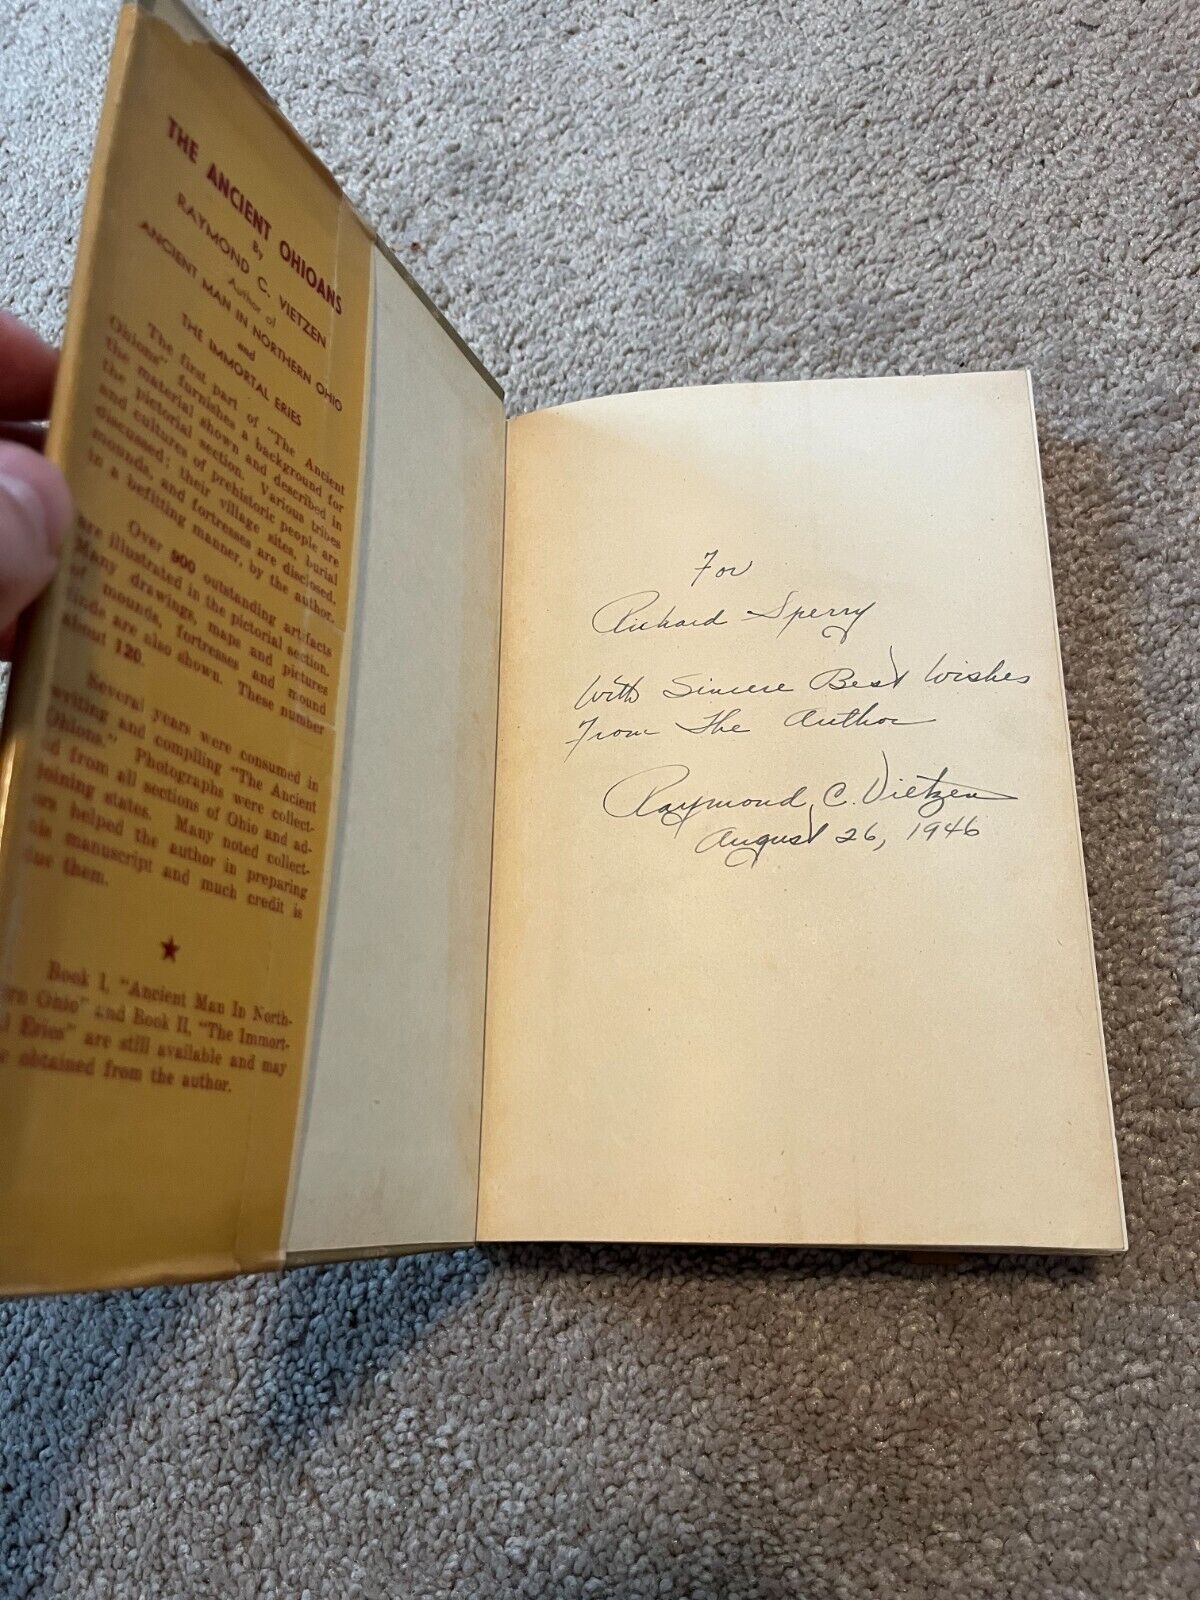 THE ANCIENT OHIOANS
By
RAYMOND C. VIETZEN
Author of
ANCIENT MAN IN NORTHERN OHIO
and
THE IMMORTAL ERIES
The first part of "The Ancient
Ohions" furnishes a background for
the material shown and described in
the pictorial section. Various tribes
and cultures of prehistoric people are
discussed; their village sites, burial
mounds, and fortresses are disclosed,
in a befitting manner, by the author.
Over 900 outstanding artifacts
are illustrated in the pictorial section.
Many drawings, maps and pictures
of mounds, fortresses and mound
finds are also shown. These number
about 120.
Several years were consumed in
writing and compiling "The Ancient
Ohions." Photographs were collect-
ed from all sections of Ohio and ad-
joining states. Many noted collect-
ors helped the author in preparing
manuscript and much credit is
due them.
Book I, "Ancient Man In North-
ern Ohio" and Book II, "The Immort-
al Eries" are still available and may
be obtained from the author.
For
Richard Sperry
With Sincere Best Wishes
From The Author
Raymond C. Vietzen
August 26, 1946